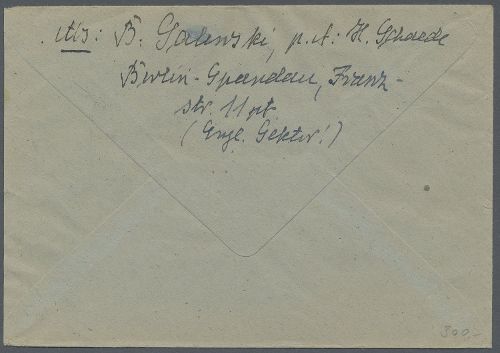 B. Galewski, p. A: H. Schaede
Berlin-Spandau, Franz-
str. 11 pt
(Engl. Sektor!)
300,-